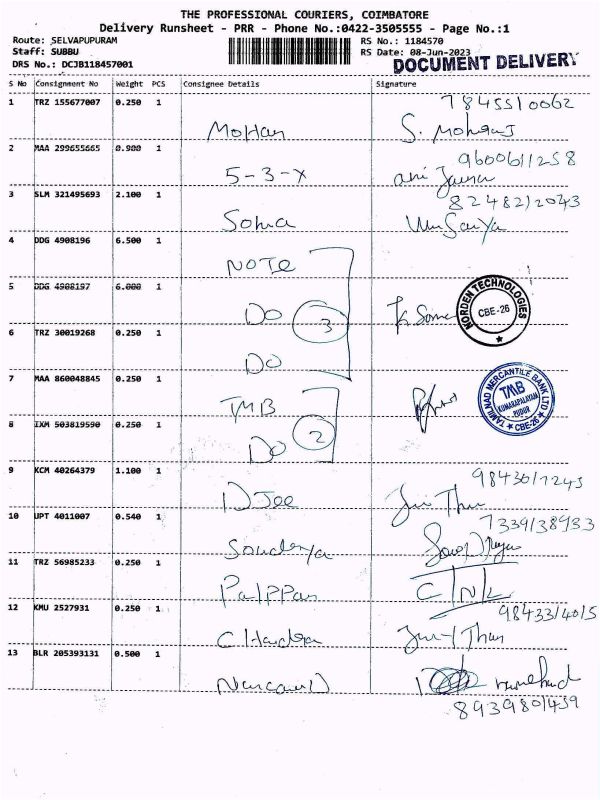 THE PROFESSIONAL COURIERS, COIMBATORE
Delivery Runsheet - PRR - Phone No.:0422-3505555 - Page No.:1
Route: SELVAPUPURAM
RS No.: 1184570
Staff: SUBBU
RS Date: 08-Jun-2023
DRS No.: DCJB118457001
DOCUMENT DELIVERY
S No Consignment No Weight PCS Consignee Details Signature
1 TRZ 155677007 0.250 1
7845510062
Mohan S. Mohan
2 MAA 299655665 0.900 1
9600611258
5-3-X
3 SLM 321495693 2.100 1
8248212043
Soma
4 DDG 4908196 6.500 1
NOTE
5 DDG 4908197 6.000 1
DO 3
NORDEN TECHNOLOGIES
CBE-26
6 TRZ 30019268 0.250 1
DO
7 MAA 860048845 0.250 1
TMB
TAMILNAD MERCANTILE BANK LTD
TMB
KUMARAPALAYAM
PUDUR
CBE-26
8 IXM 503819590 0.250 1
DO 2
9 KCM 40264379 1.100 1
DJee
10 UPT 4011007 0.540 1
7339138933
11 TRZ 56985233 0.250 1
C/N/L
12 KMU 2527931 0.250 1
9843314015
13 BLR 205393131 0.500 1
8939801459